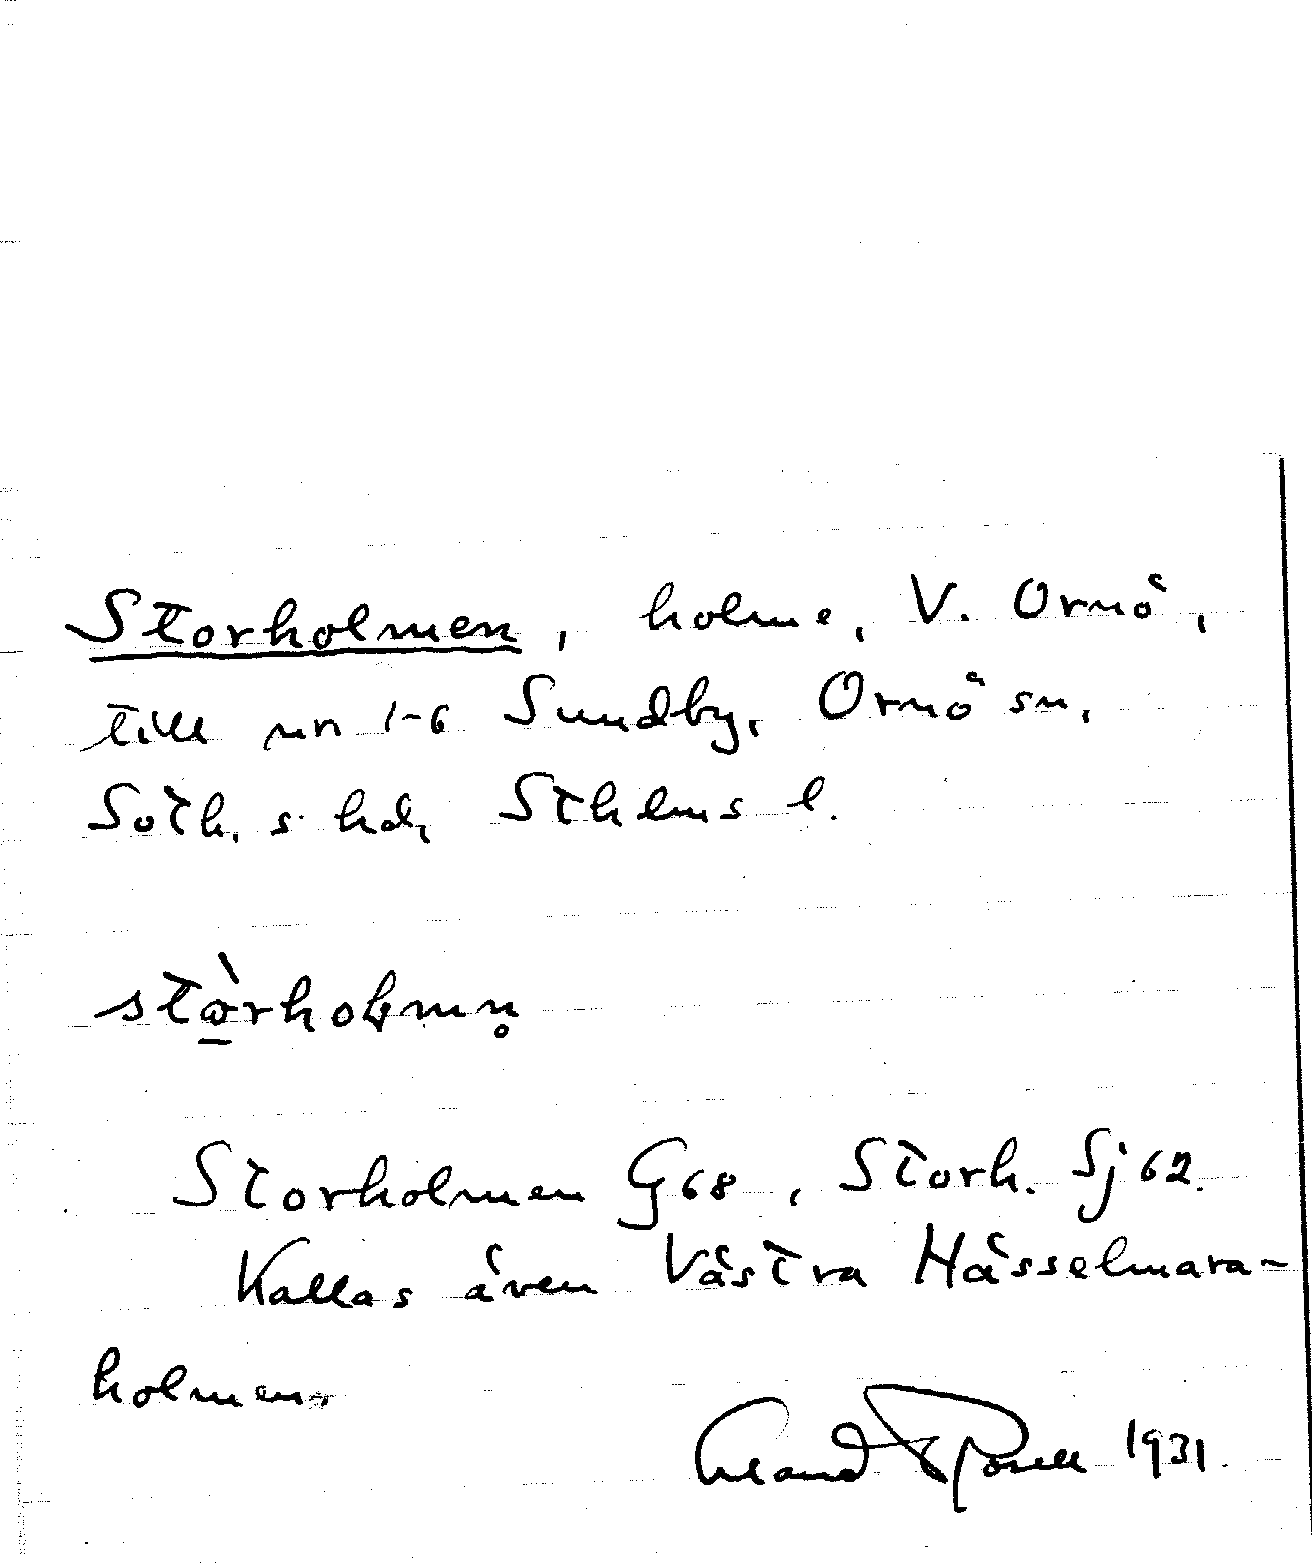 Storholmen, holme, V. Ornö,
till nr 1-6 Sundby, Ornö sn,
Soth. s hd, Sthlms l.
Storholmen G68, Storh. Sj 62.
Kallas även Västra Hässelmara-
holmen.
1931.